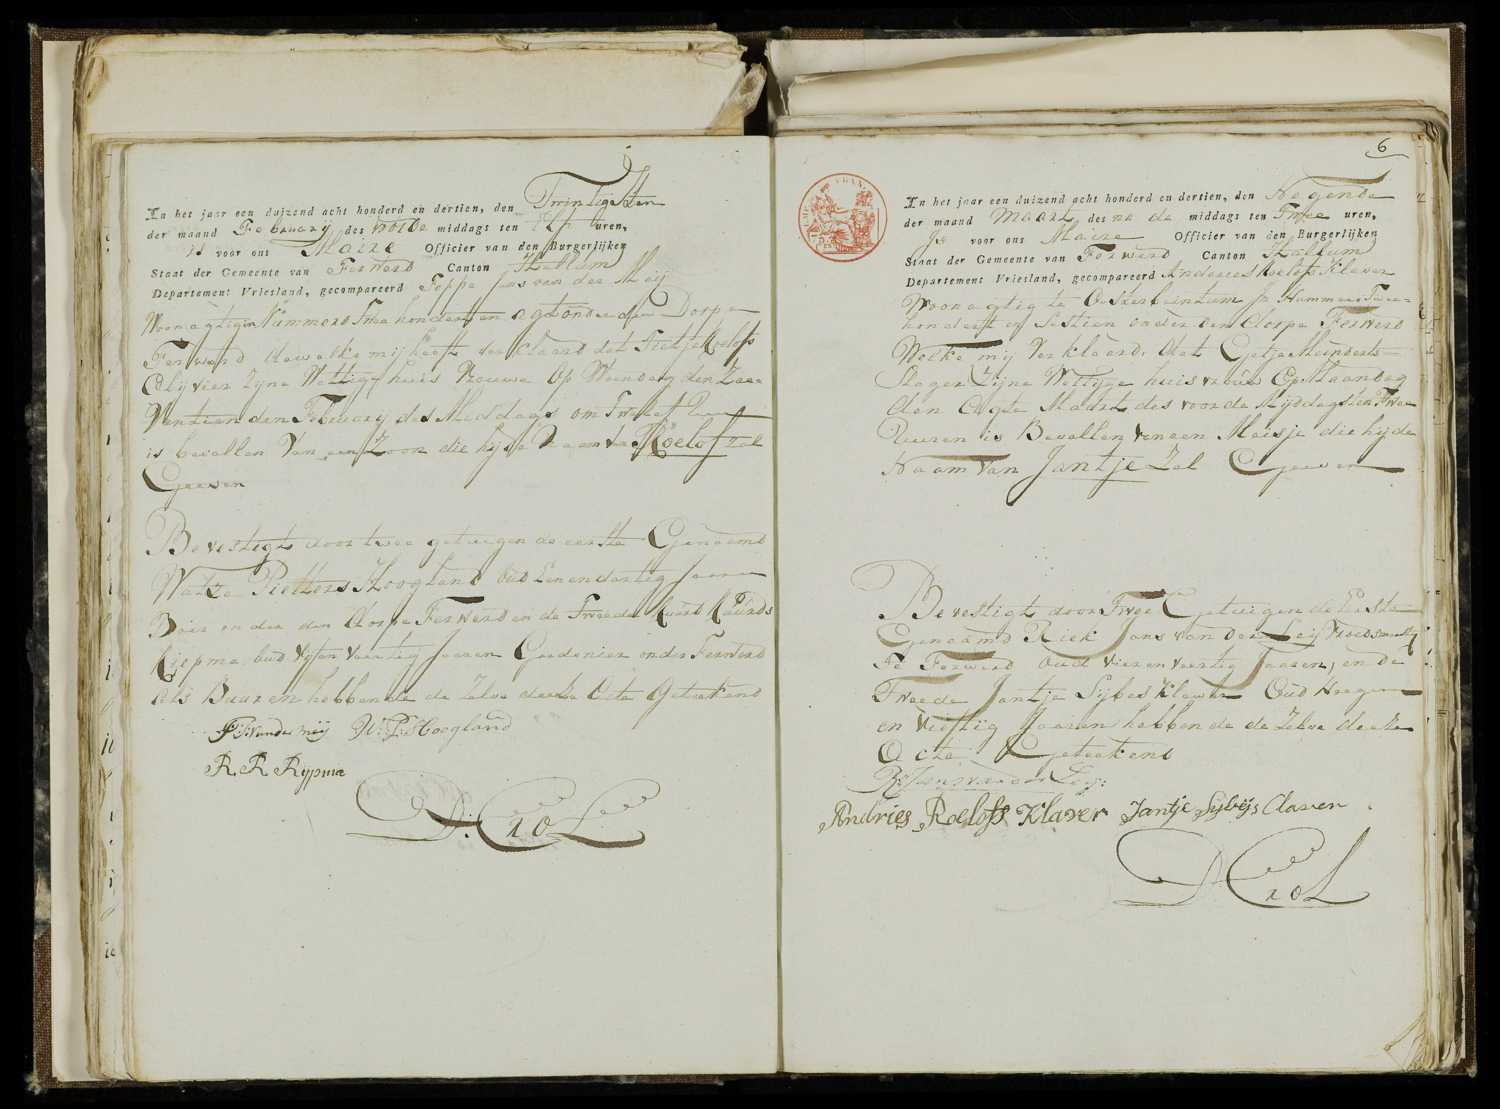 In het jaar een duizend acht honderd en dertien, den Twintigsten
der maand February des voorde middags ten Elf uren,
is voor ons Maire Officier van den Burgerlijken
Staat der Gemeente van Ferwerd Canton Hallum
Departement Vriesland, gecompareerd Foppe Jans van der Meij
Woonagtig in Nummero Twe honderd en agt onder den Dorpe
Ferwerd dewelke mij heeft verklaard dat Trietje Roelofs
Olyvier Zijne Wettige huis Vrouwe Op Woensdag den Zee-
Ventienden February des Middags om Twaelf Uur
is bevallen Van een Zoon die hij de Naam van Roelof zal
Geeven
Bevestigt door twee getuigen de eerste Genaamd
Watze Pietters Hoogland Oud Eenendertig Jaaren
Boer onder den Dorpe Ferwerd en de Tweede Ruurd Ruurds
Riepma oud Vyf en Veertig Jaaren Gardenier onder Ferwerd
als Buuren hebbende de Zelve deeze Acte Getekend
F: J: van der meij W: P: Hoogland
R. R. Rypma
D: Crol
6
In het jaar een duizend acht honderd en dertien, den Negende
der maand Maart des na de middags ten Twee uren,
Is voor ons Maire Officier van den Burgerlijken
Staat der Gemeente van Ferwerd Canton Hallum
Departement Vriesland, gecompareerd Anderies Roelofs Klaver
Woonagtig te Oosterbeintum In Nummero Twee-
honderd en Sestien onder den dorpe Ferwerd
Welke mij Verklaerd. dat Gertje Meinderts
Slager Zijne Wettyge huis vrouw Op Maandag
den Agste Maart des voorde Mijddags ten Twee
Uuren is Bevallen Van een Meisje die hij de
Naam Van Jantje Zal Geeven
Bevestigt door Twee Getuigen de Eerste
Genaamd Riek Jans van der Leij Vroedsmeester
Te Ferwerd Oud Vier en Veertig Jaaren, en de
Tweede Jantje Sijbes Klaver Oud Neegen
en Vieftijg Jaaren hebbende de Zelve deeze
Acte Getekend
R: Jans van der Leij:
Andries Roelofs Klaver Jantje Sybeys Claver
D: Crol